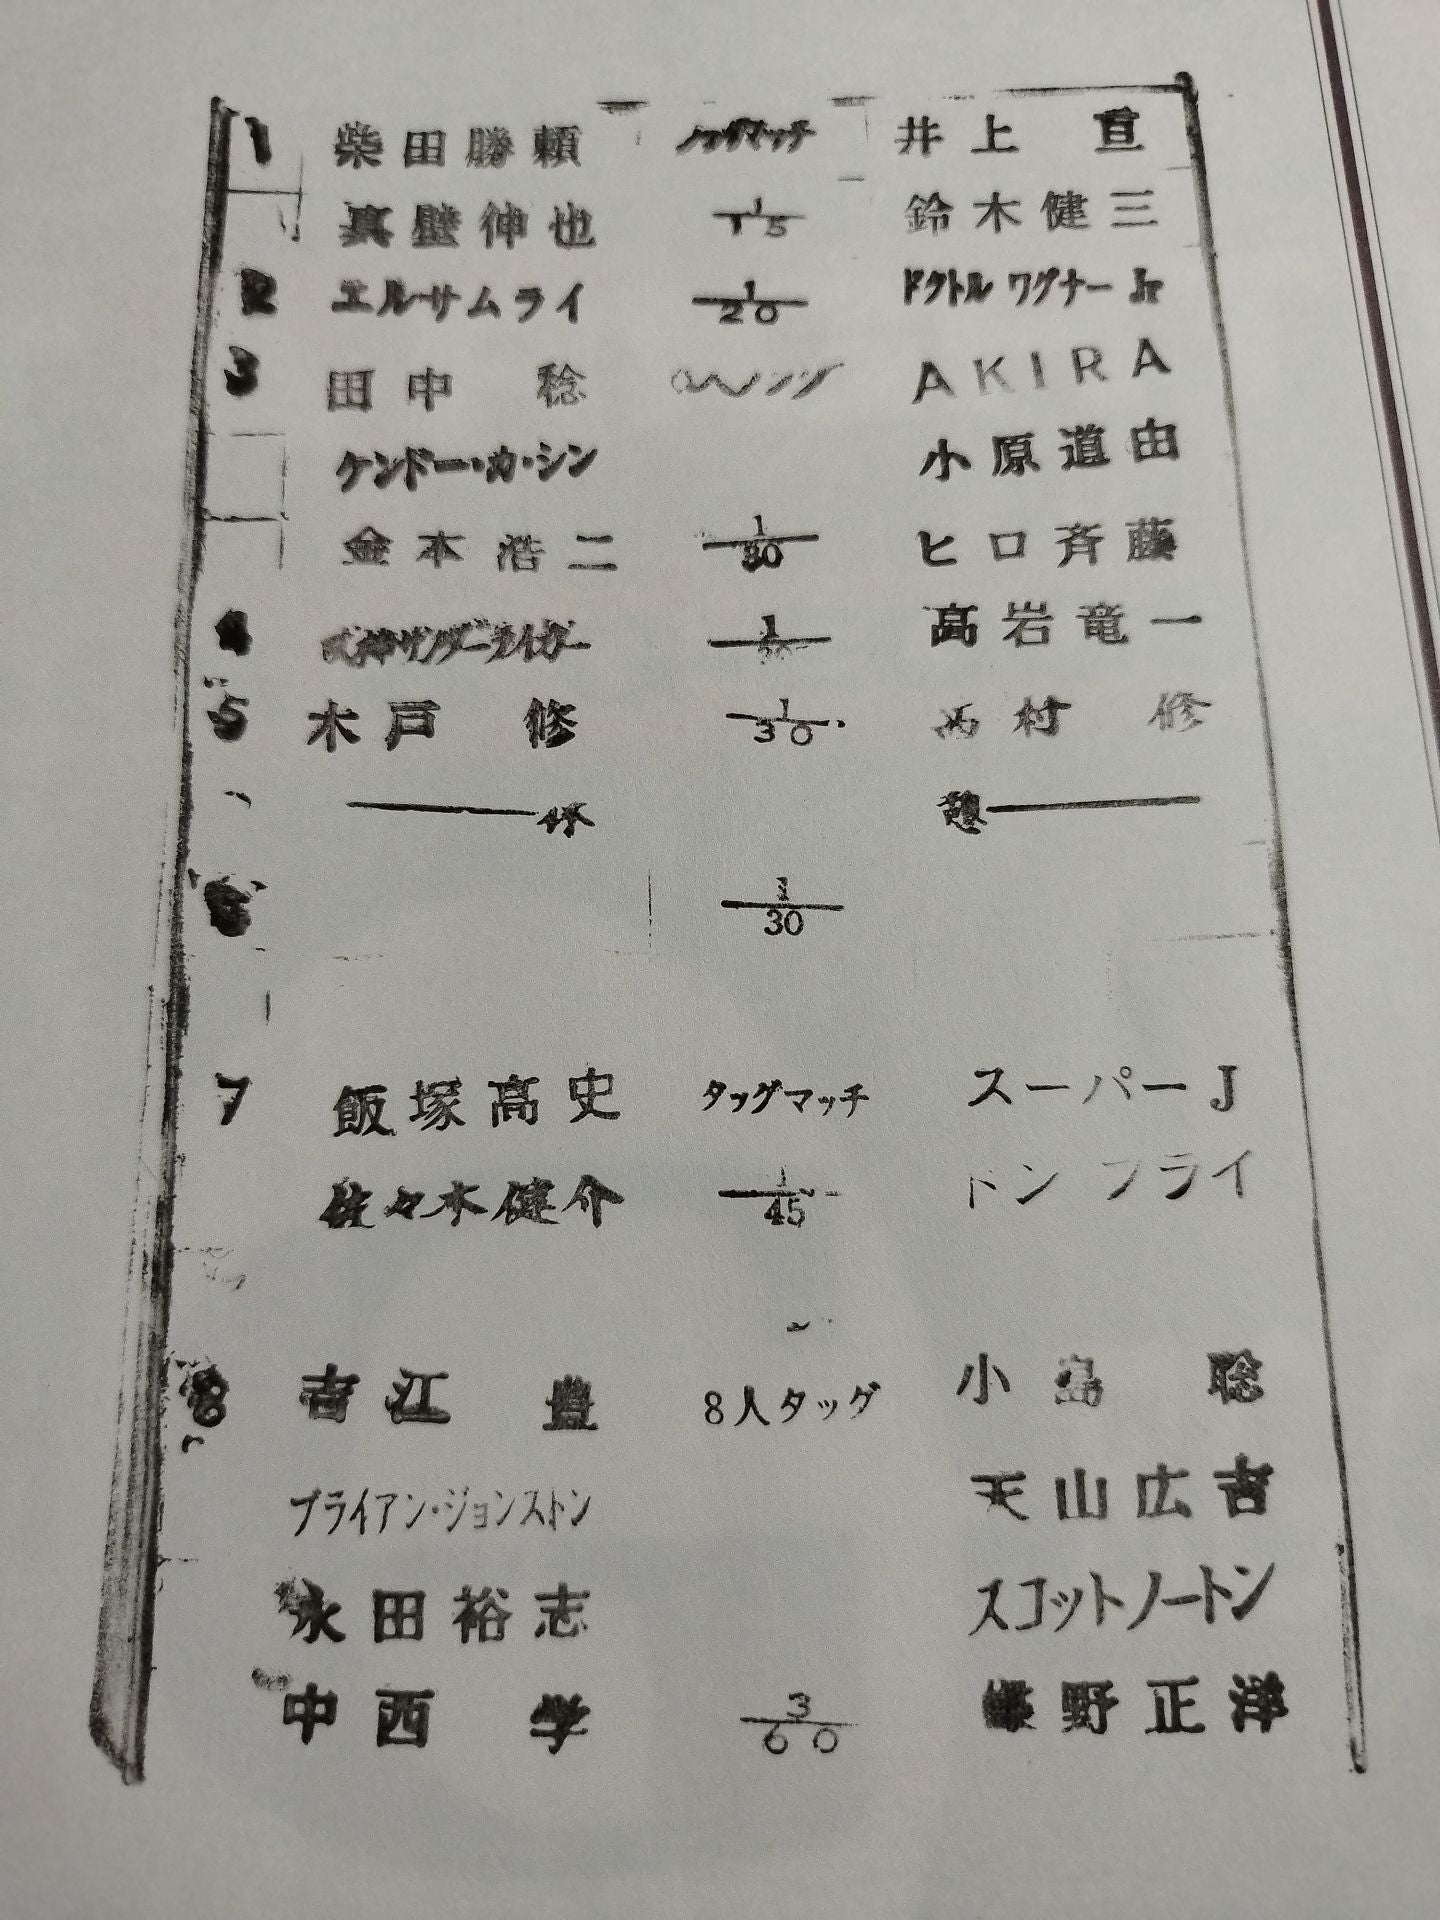 1 柴田勝頼 タッグマッチ 井上亘
真壁伸也 1/15 鈴木健三
2 エルサムライ 1/20 ドクトルワグナーJr
3 田中稔 AKIRA
ケンドー・カ・シン 小原道由
金本浩二 1/30 ヒロ斉藤
4 獣神サンダーライガー 1/30 高岩竜一
5 木戸修 1/30 西村修
休 憩
6 1/30
7 飯塚高史 タッグマッチ スーパーJ
佐々木健介 1/45 ドンフライ
8 吉江豊 8人タッグ 小島聡
ブライアン・ジョンストン 天山広吉
永田裕志 スコットノートン
中西学 3/60 蝶野正洋